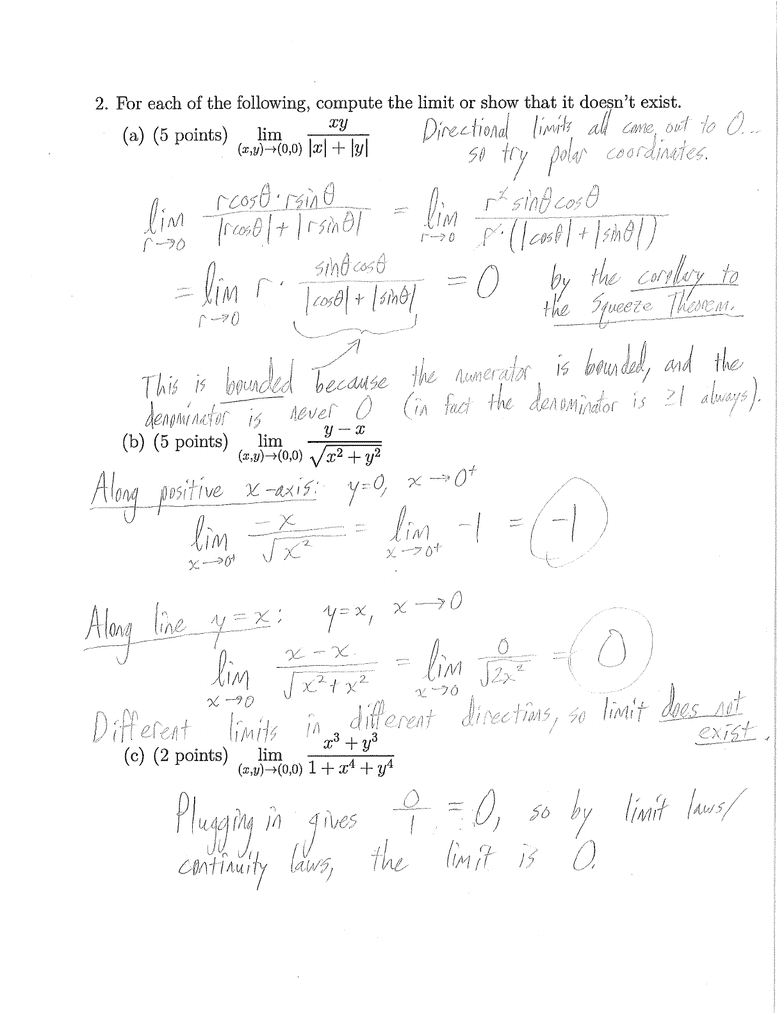 2. For each of the following, compute the limit or show that it doesn't exist.
(a) (5 points) lim (x,y)→(0,0) xy / |x| + |y|
Directional limits all come out to 0...
so try polar coordinates.
lim r→0 rcosθ·rsinθ / |rcosθ| + |rsinθ| = lim r→0 r² sinθ cosθ / r·(|cosθ| + |sinθ|)
= lim r→0 r · sinθ cosθ / |cosθ| + |sinθ| = 0 by the corollary to
the Squeeze Theorem.
This is bounded because the numerator is bounded, and the
denominator is never 0 (in fact the denominator is ≥1 always).
(b) (5 points) lim (x,y)→(0,0) y − x / √x² + y²
Along positive x-axis: y=0, x→0⁺
lim x→0⁺ −x / √x² = lim x→0⁺ −1 = −1
Along line y=x: y=x, x→0
lim x→0 x − x / √x² + x² = lim x→0 0 / √2x² = 0
Different limits in different directions, so limit does not
exist.
(c) (2 points) lim (x,y)→(0,0) x³ + y³ / 1 + x⁴ + y⁴
Plugging in gives 0/1 = 0, so by limit laws/
continuity laws, the limit is 0.